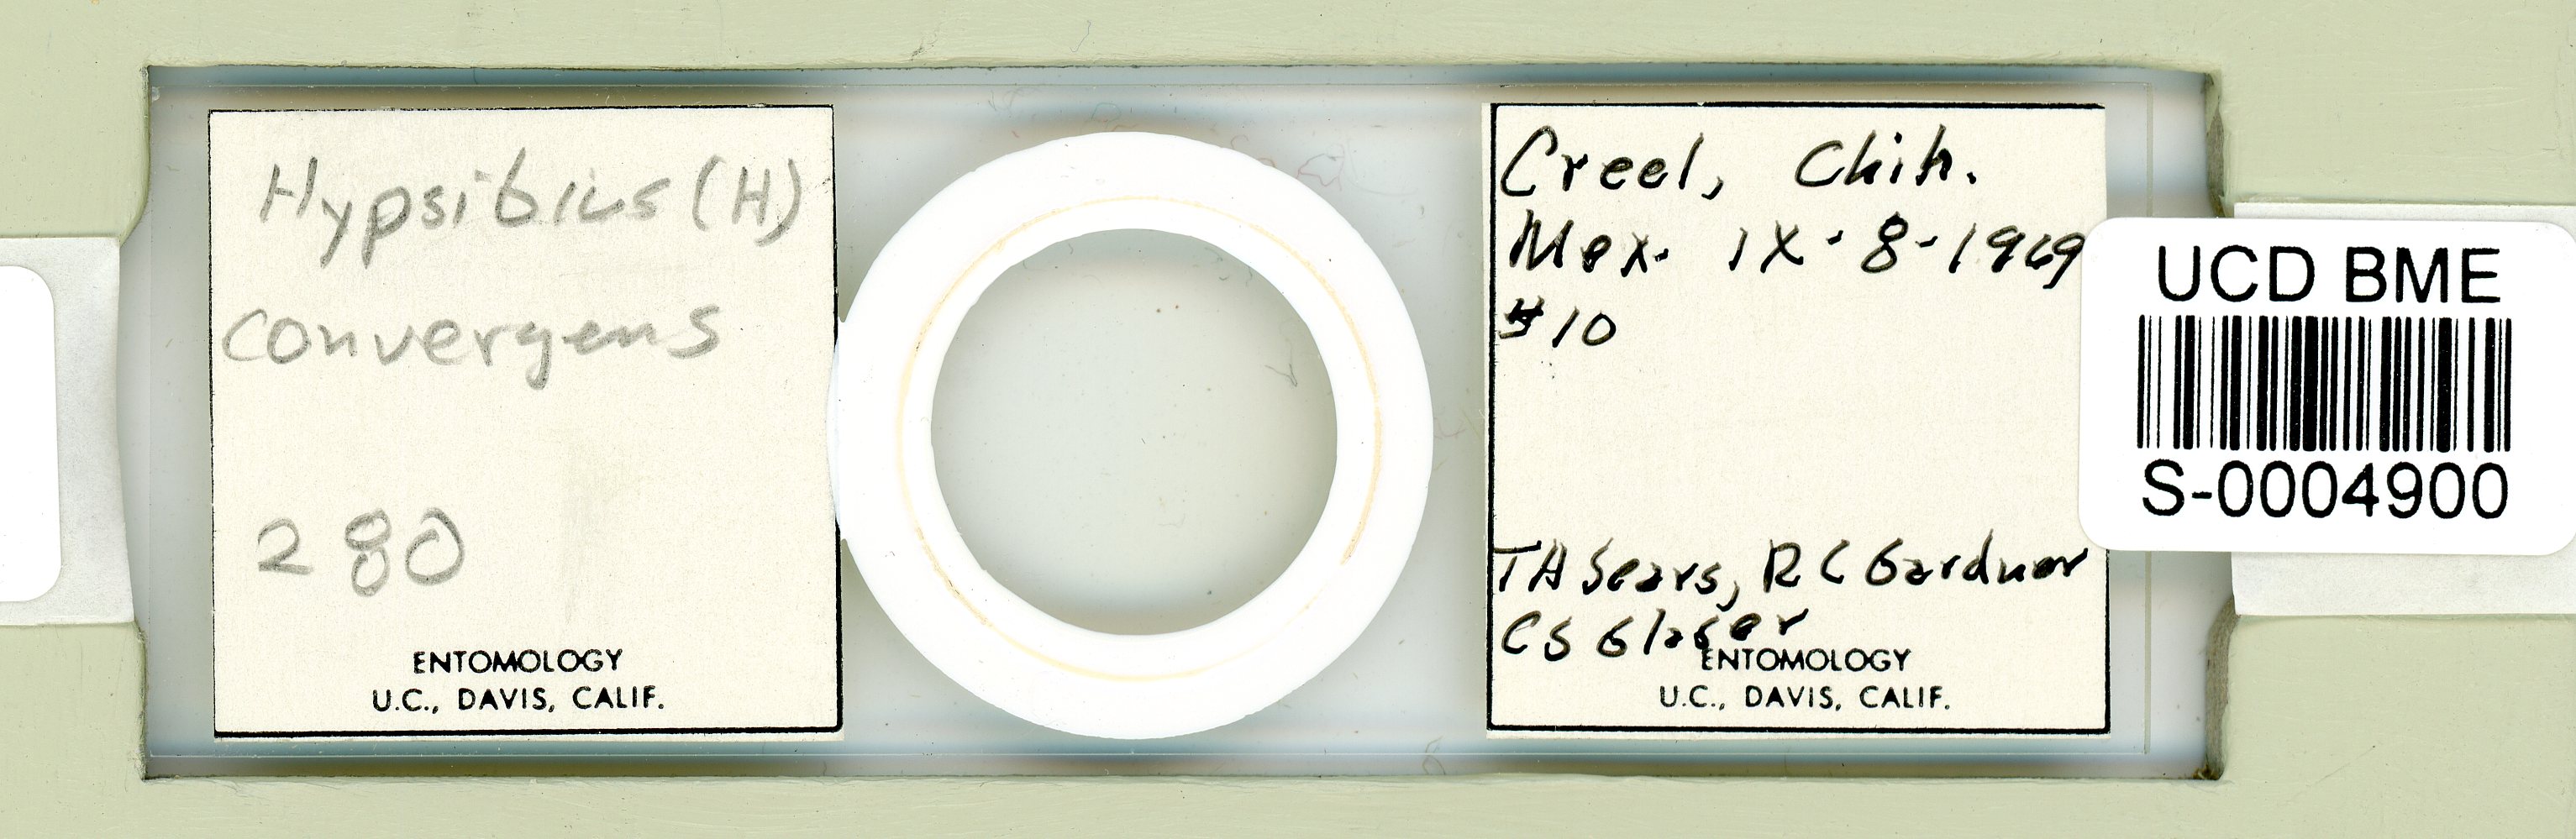 Hypsibius (H)
convergens
280
ENTOMOLOGY
U.C., DAVIS, CALIF.
Creel, Chih.
Mex. IX-8-1969
#10
TA Sears, RC Gardner
CS Glaser
ENTOMOLOGY
U.C., DAVIS, CALIF.
UCD BME
S-0004900